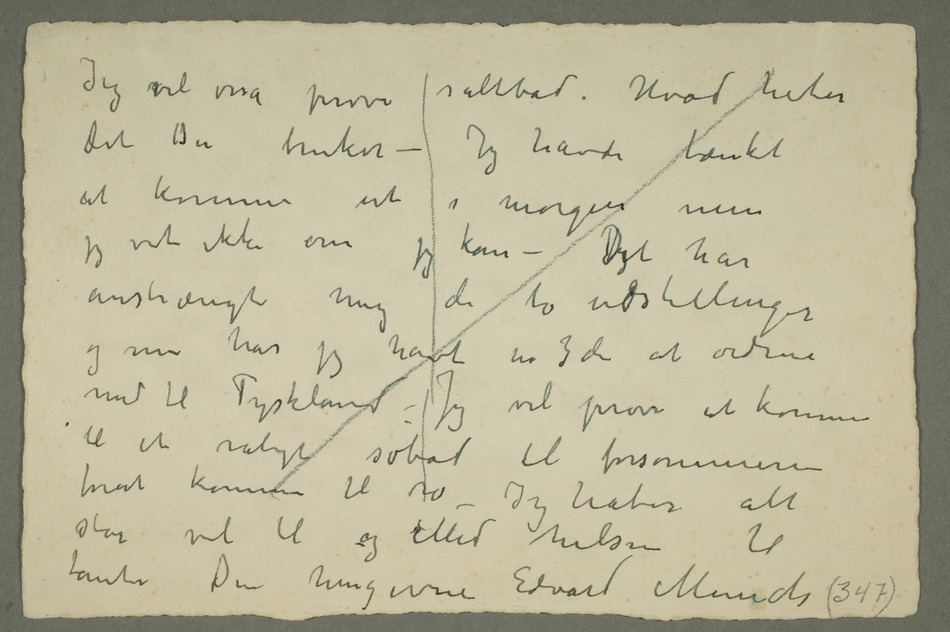 Jeg vil osså prøve saltbad. Hvad heter
det Du bruker – Jeg havde tænkt
at komme ut i morgen men
jeg vet ikke om jeg kan – Det har
anstrængt mig de to udstillinger
og nu har jeg havt en 3de at ordne
med til Tyskland – Jeg vil prøve at komme
til et roligt søbad til forsommeren
forat komme til ro – Jeg håber alt
står vel til og med hilsen til
tante Din hengivne Edvard Munch (347)